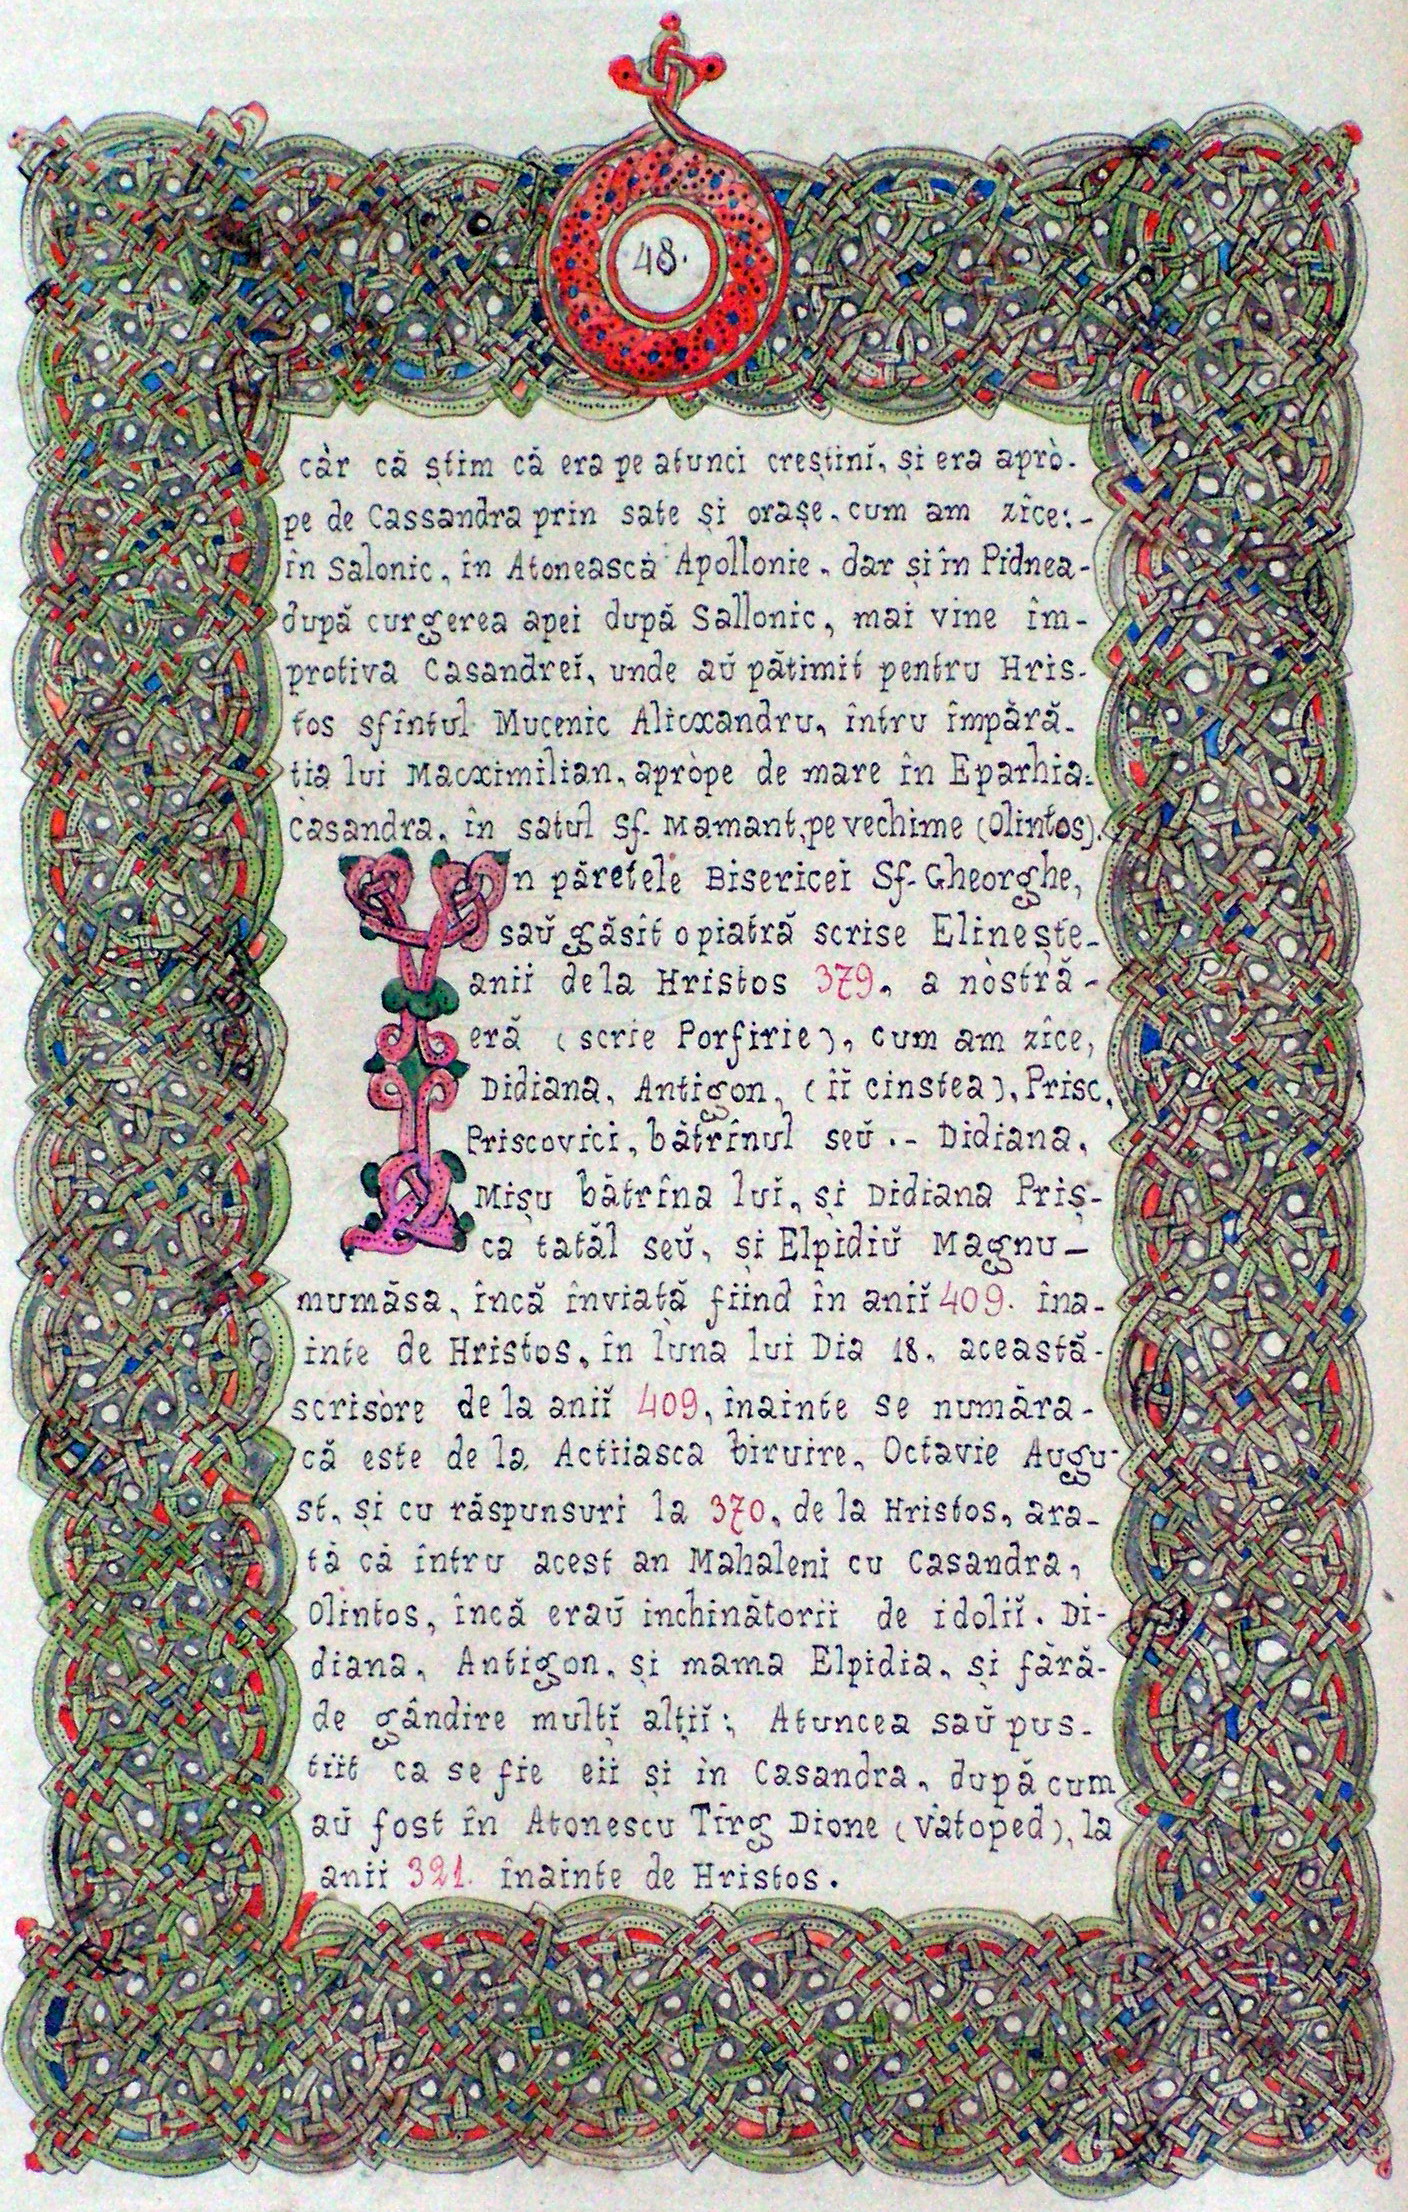 48.
càr că știm că era pe atunci creștinĭ, și era aprò-
pe de Cassandra prin sate și orașe, cum am zîce:-
în Salonic, în Atonească Apollonie, dar și în Pidnea-
după curgerea apei după Sallonic, mai vine îm-
protiva Casandreĭ, unde aŭ pătimit pentru Hris-
tos sfîntul Mucenic Alicxandru, întru împără-
ția lui Macximilian, apròpe de mare în Eparhia-
Casandra, în satul Sf. Mamant, pe vechime (Olintos).
În păretele Bisericei Sf. Gheorghe,
saŭ găsît o piatră scrise Elinește-
aniĭ de la Hristos 379, a nòstră-
eră (scrie Porfirie), cum am zîce,
Didiana, Antigon, (îĭ cinstea), Prisc,
Priscovici, bătrînul seŭ.- Didiana,
Mișu bătrîna luĭ, și Didiana Priș-
ca tatăl seŭ, și Elpidiŭ Magnu-
mumăsa, încă înviată fiind în aniĭ 409. îna-
inte de Hristos, în luna lui Dia 18, această-
scrisòre de la aniĭ 409, înainte se număra-
că este de la Actiiasca biruire, Octavie Augu-
st, și cu răspunsuri la 370, de la Hristos, ara-
tă că întru acest an Mahaleni cu Casandra,
Olintos, încă eraŭ inchinătorii de idoliĭ. Di-
diana, Antigon, și mama Elpidia, și fără-
de gândire multĭ alțiĭ; Atuncea saŭ pus-
tiit ca se fie eii și în Casandra, după cum
aŭ fost în Atonescu Tîrg Dione (Vatoped), la
anii 321. înainte de Hristos.